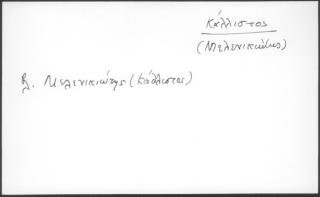 Κάλλιστος
(Μελενικιώτης)
βλ. Μελενικιώτης (Κάλλιστος)